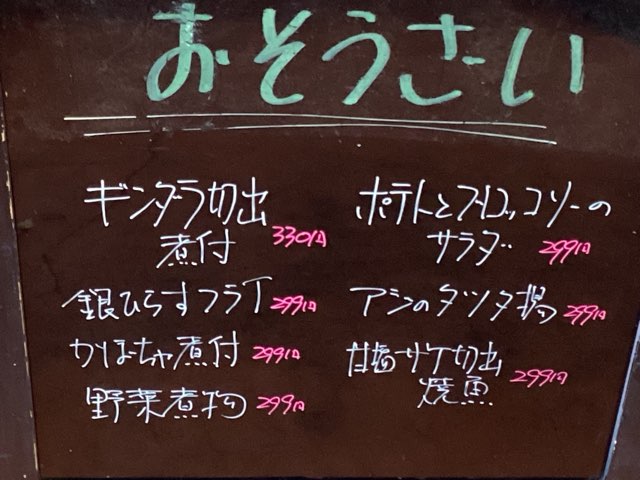 おそうざい
ギンダラ切出
煮付 330円
銀ひらすフライ 299円
かぼちゃ煮付 299円
野菜煮物 299円
ポテトとブロッコリーの
サラダ 299円
アジのタツタ揚 299円
甘塩サケ切出
焼魚 299円